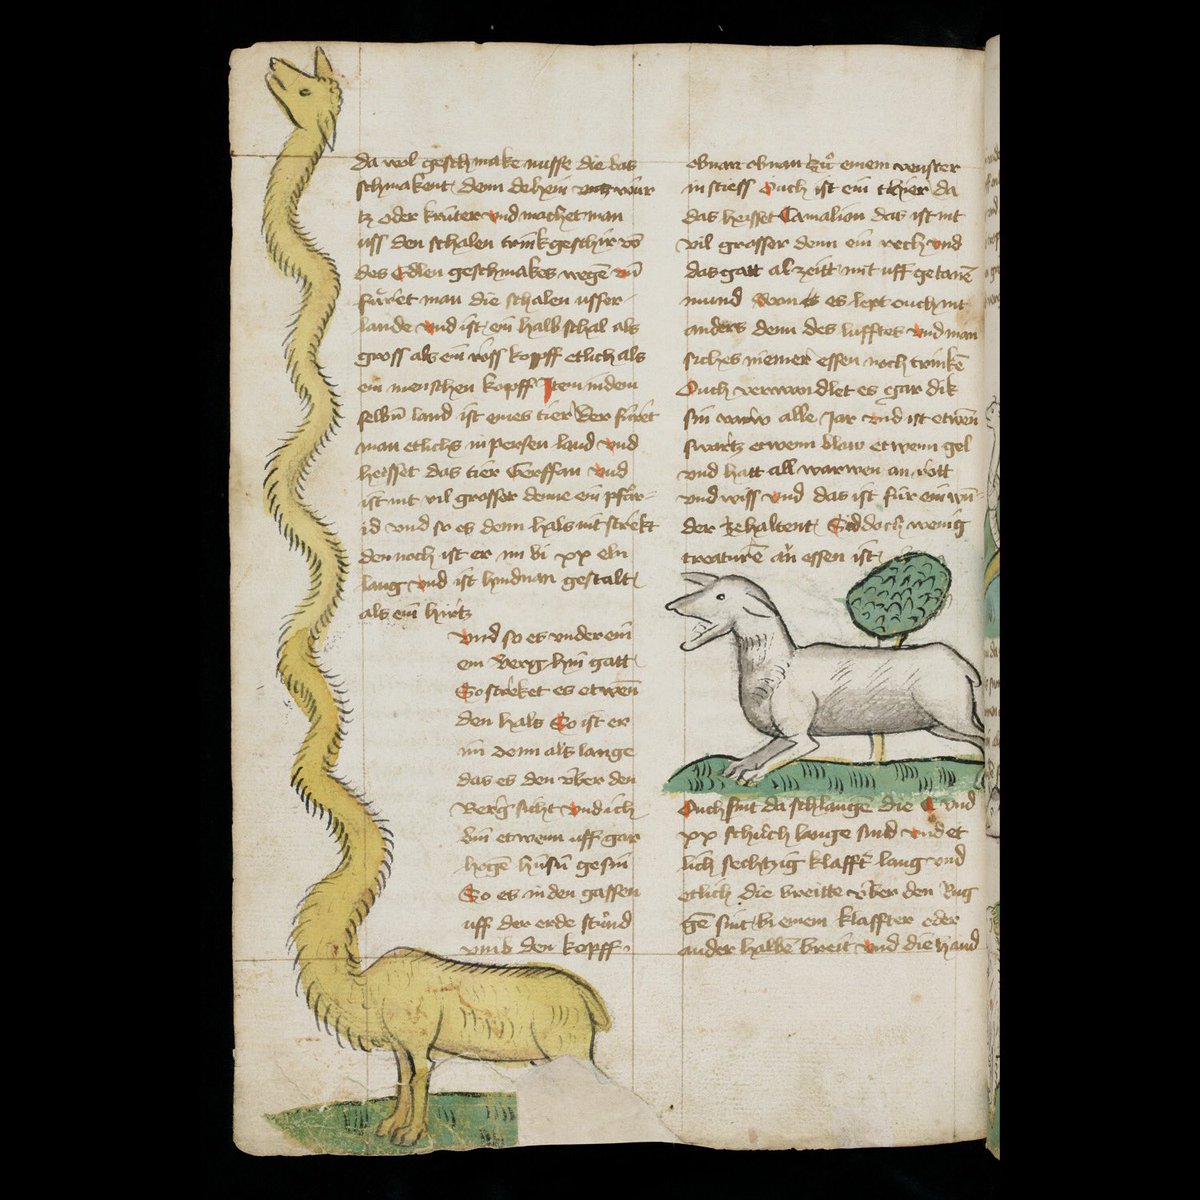 da wol geschmake nusse die das
schmakent denn dehein wur
tz oder krúter vnd machet man
uss den schalen trinkgeschir vō
des Edlen geschmakes wegē vñ
fúret man die schalen usser
lande vnd ist ein halb schal als
gross als ein ross kopff etlich als
ein menschen kopff Item in dem
selbn̄ land ist eines tier Der fúret
man etlichs in persen land vnd
heisset das tier Gerffan vnd
ist nit vil grosser denne ein pfår
id vnd so es denn hals nit strekt
dennoch ist er im bi xx eln
lang vnd ist hindnan gestalt
als ein hirtz
vnd so es vnder ein
ein berg hin gatt
So streket es etwen̄
den hals So ist er
im denn als lange
das es den v̊ber den
Berg sicht vnd ich
bin etwenn uff gar
hogē húsn̄ gesin
So es in den gassen
uff der erde stůnd
vmb den kopff
obnan obnan zů einem venster
in stiess Ouch ist ein thier da
das heisset Camalion das ist nit
vil grosser denn ein rech vnd
das gatt al zeitt mit uff getanē
mund wan es lept ouch nit
anders denn des lufftes vnd man
siches niemer essen noch trinkē
Ouch verwandlet es gar dik
sin varw alle Jar vnd ist etwen̄
swartz etwenn blaw etwenn gel
vnd hatt all varwen an rott
vnd wiss vnd das ist fúr ein wn̄
der zehaltent Sid doch wenig
creaturē an essen ist
Ouch sint da schlange die C vnd
xx schůch lange sind vnd et
lich sechtzig klafft̄ lang vnd
etlich die breitte v̊ber den Rug
gē sint bi einem klaffter oder
ander halbē breit vnd die hand